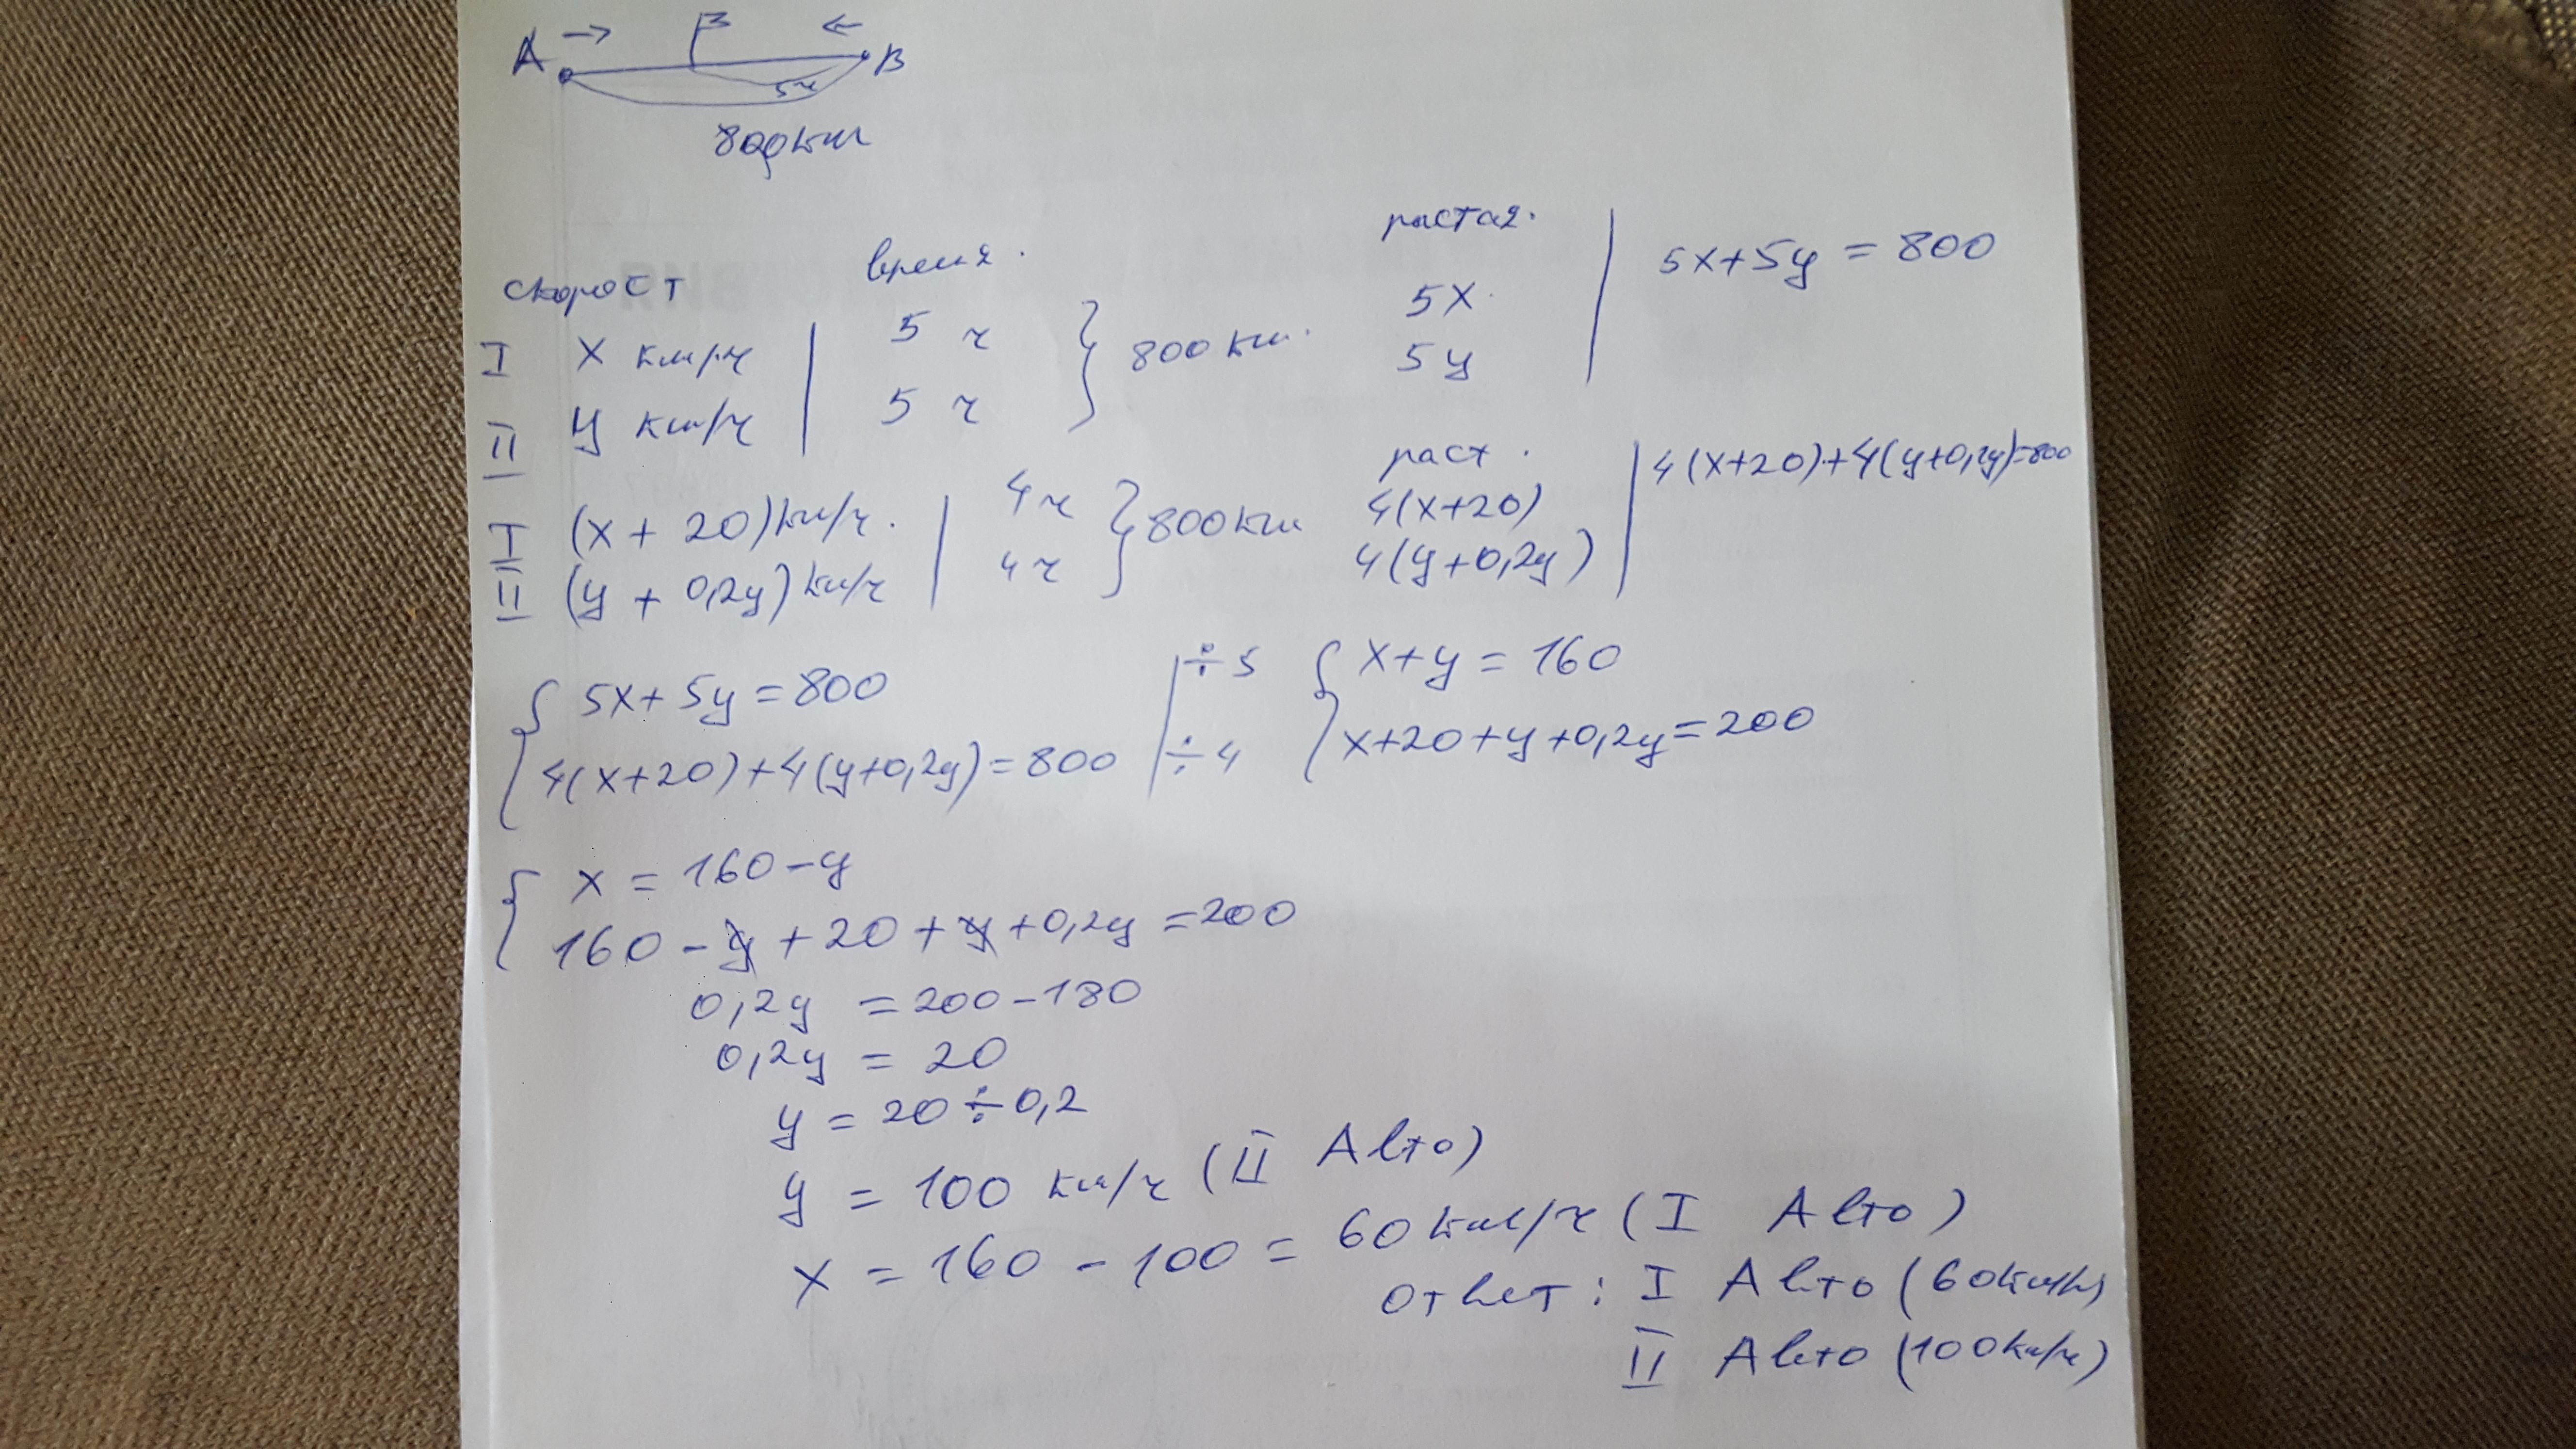 A → ← B
5ч
800км
скорост время. растоя.
I x км/ч | 5 ч } 800 км. 5x | 5x+5y = 800
II y км/ч | 5 ч 5y
раст.
I (x + 20) км/ч. | 4ч } 800км 4(x+20) | 4(x+20)+4(y+0,2y)=800
II (y + 0,2y) км/ч | 4ч 4(y+0,2y)
{ 5x+5y=800 | ÷5 { x+y = 160
4(x+20)+4(y+0,2y)=800 | ÷4 x+20+y+0,2y=200
{ x = 160-y
160 - y + 20 + y + 0,2y = 200
0,2y = 200-180
0,2y = 20
y = 20÷0,2
y = 100 км/ч (II Авто)
x = 160 - 100 = 60 км/ч (I Авто)
Ответ: I Авто (60км/ч)
II Авто (100км/ч)